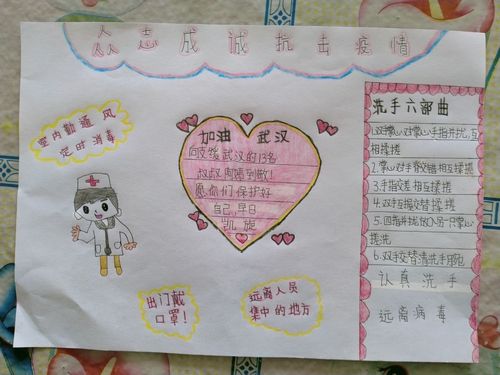 众志成诚抗击疫情
室内勤通风
定时消毒
加油 武汉
向支援武汉的13名
叔叔阿姨致敬!
愿你们保护好
自己,早日
凯旋
出门戴
口罩!
远离人员
集中的地方
洗手六部曲
1.双手掌心对掌心手指并拢,互
相揉搓
2.掌心对手背交错相互揉搓
3.手指交差相互揉搓
4.双手互握交替揉搓
5.四指并拢放入另一只掌心
搓洗
6.双手交替清洗手腕
认真洗手
远离病毒